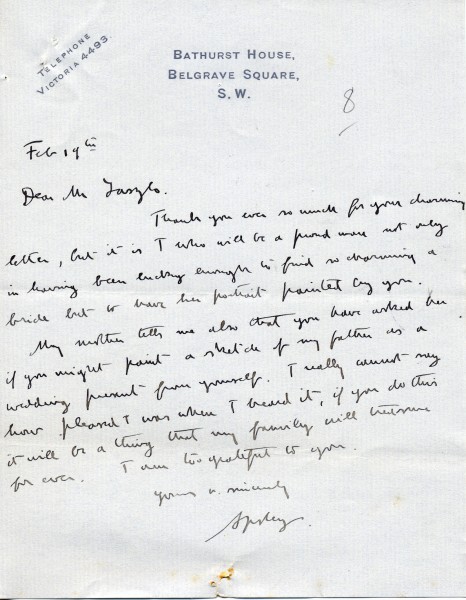 TELEPHONE
VICTORIA 4493.
BATHURST HOUSE,
BELGRAVE SQUARE,
S.W.
8
Feb 19th
Dear Mr Laszlo.
Thank you ever so much for your charming
letter, but it is I who will be a proud man not only
in having been lucky enough to find so charming a
bride but to have her portrait painted by you.
My mother tells me also that you have asked her
if you might paint a sketch of my father as a
wedding present from yourself. I really cannot say
how pleased I was when I heard it, if you do this
it will be a thing that my family will treasure
for ever. I am too grateful to you.
yours v. sincerely
Apsley.